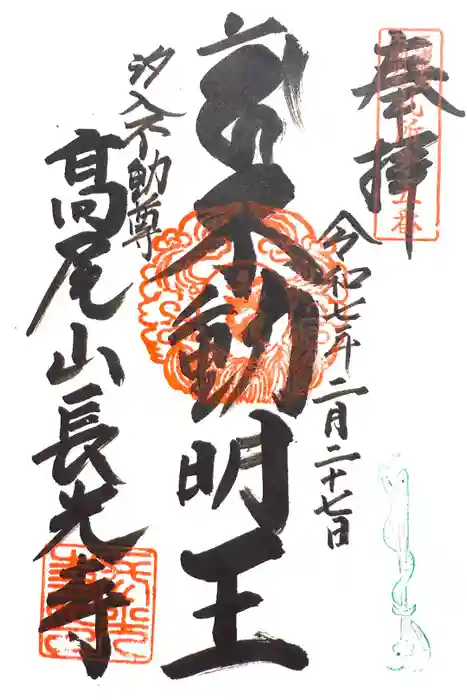 奉拝
令和七年二月二十七日
不動明王
汐入不動尊
高尾山長光寺